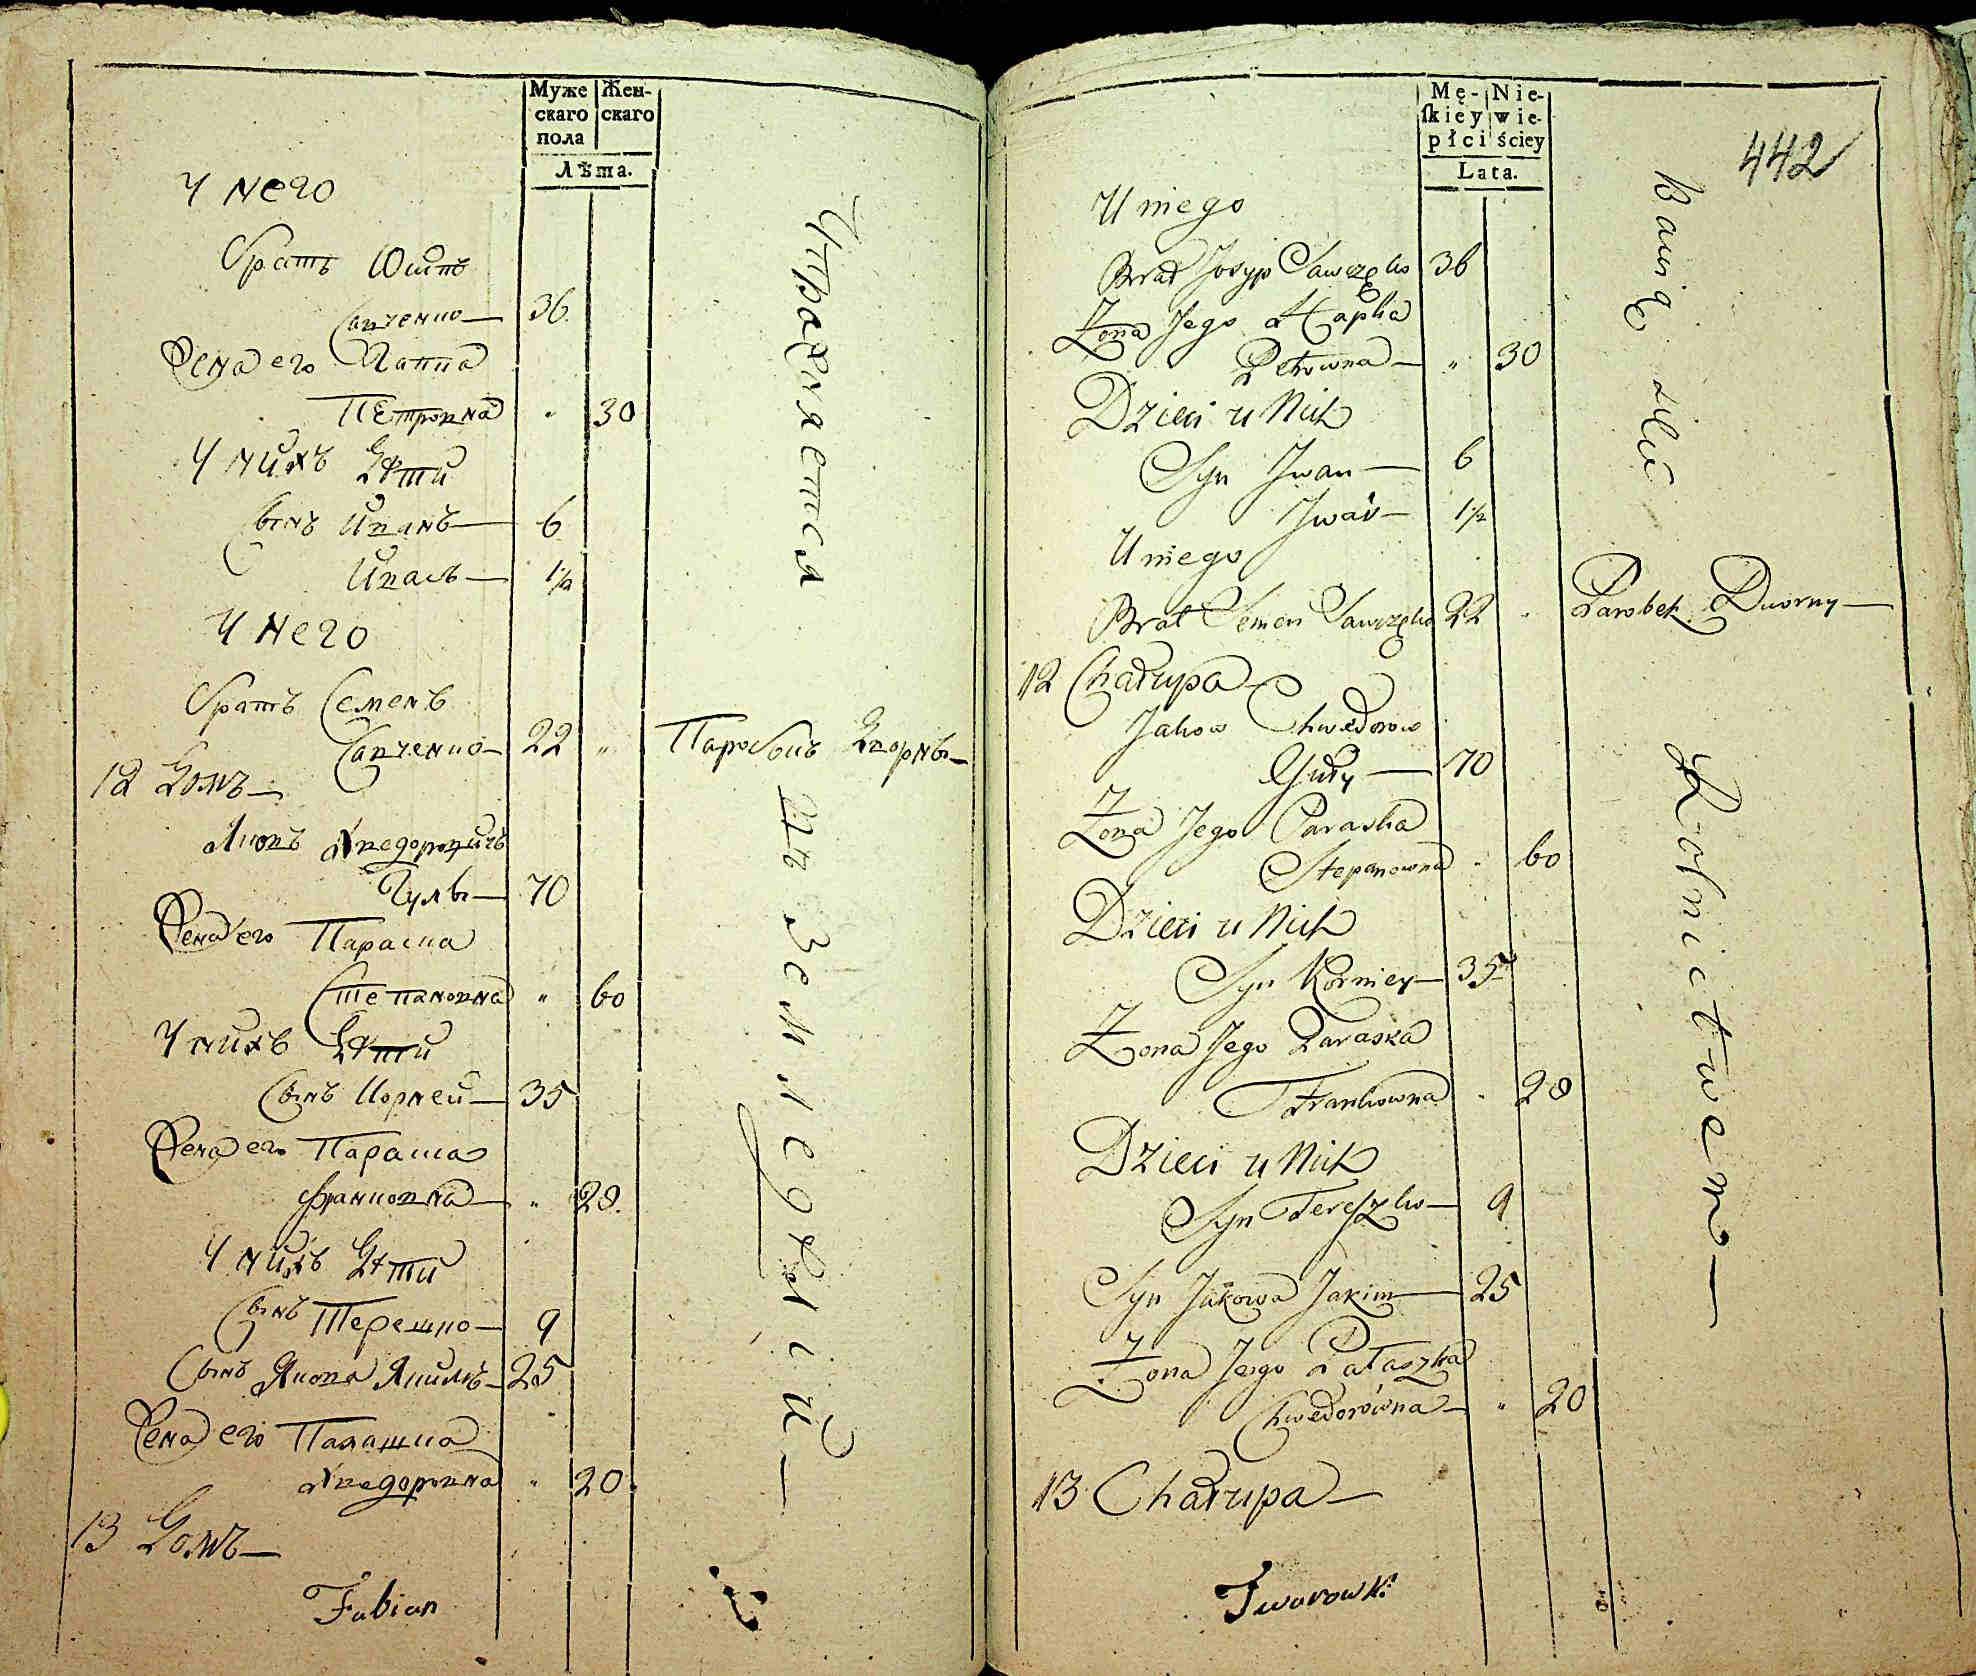 Муже
скаго
пола
Жен-
скаго
Лѣта.
У него
братъ Юсипъ
Савченко — 36
Жена его Гапка
Петровна " 30
У нихъ Дѣти
Сынъ Иванъ — 6
Ивась — 1½
У него
братъ Семенъ
Савченко — 22 " Паробокъ Дворный —
12 Домъ —
Яковъ Хведоровичъ
Гулы — 70
Жена его Параска
Степановна " 60
У нихъ Дѣти
Сынъ Корней — 35
Жена его Параска
Франковна — " 28.
У нихъ Дѣти
Сынъ Терешко — 9
Сынъ Якова Якимъ — 25
Жена его Палашка
Хведоровна " 20.
13 Домъ —
Fabian
Упражняется
въ Земледѣліи —
442
Mę-
skiey
płci
Nie-
wie-
ściey
Lata.
U niego
Brat Josyp Sawczęko 36
Żona Jego Hapka
Petrowna — " 30
Dzieci u Nich
Syn Jwan — 6
Jwaś — 1½
U niego
Brat Semen Sawczęko 22 " Parobek Dworny —
12 Chałupa —
Jakow Chwedorow
Guły — 70
Żona Jego Paraska
Stepanowna " 60
Dzieci u Nich
Syn Korniey — 35
Żona Jego Paraska
Frankowna " 28
Dzieci u Nich
Syn Tereszko — 9
Syn Jakowa Jakim — 25
Żona Jego Pałaszka
Chwedorówna — " 20
13 Chałupa —
Jworowski
Bawię się
Rolnictwem —